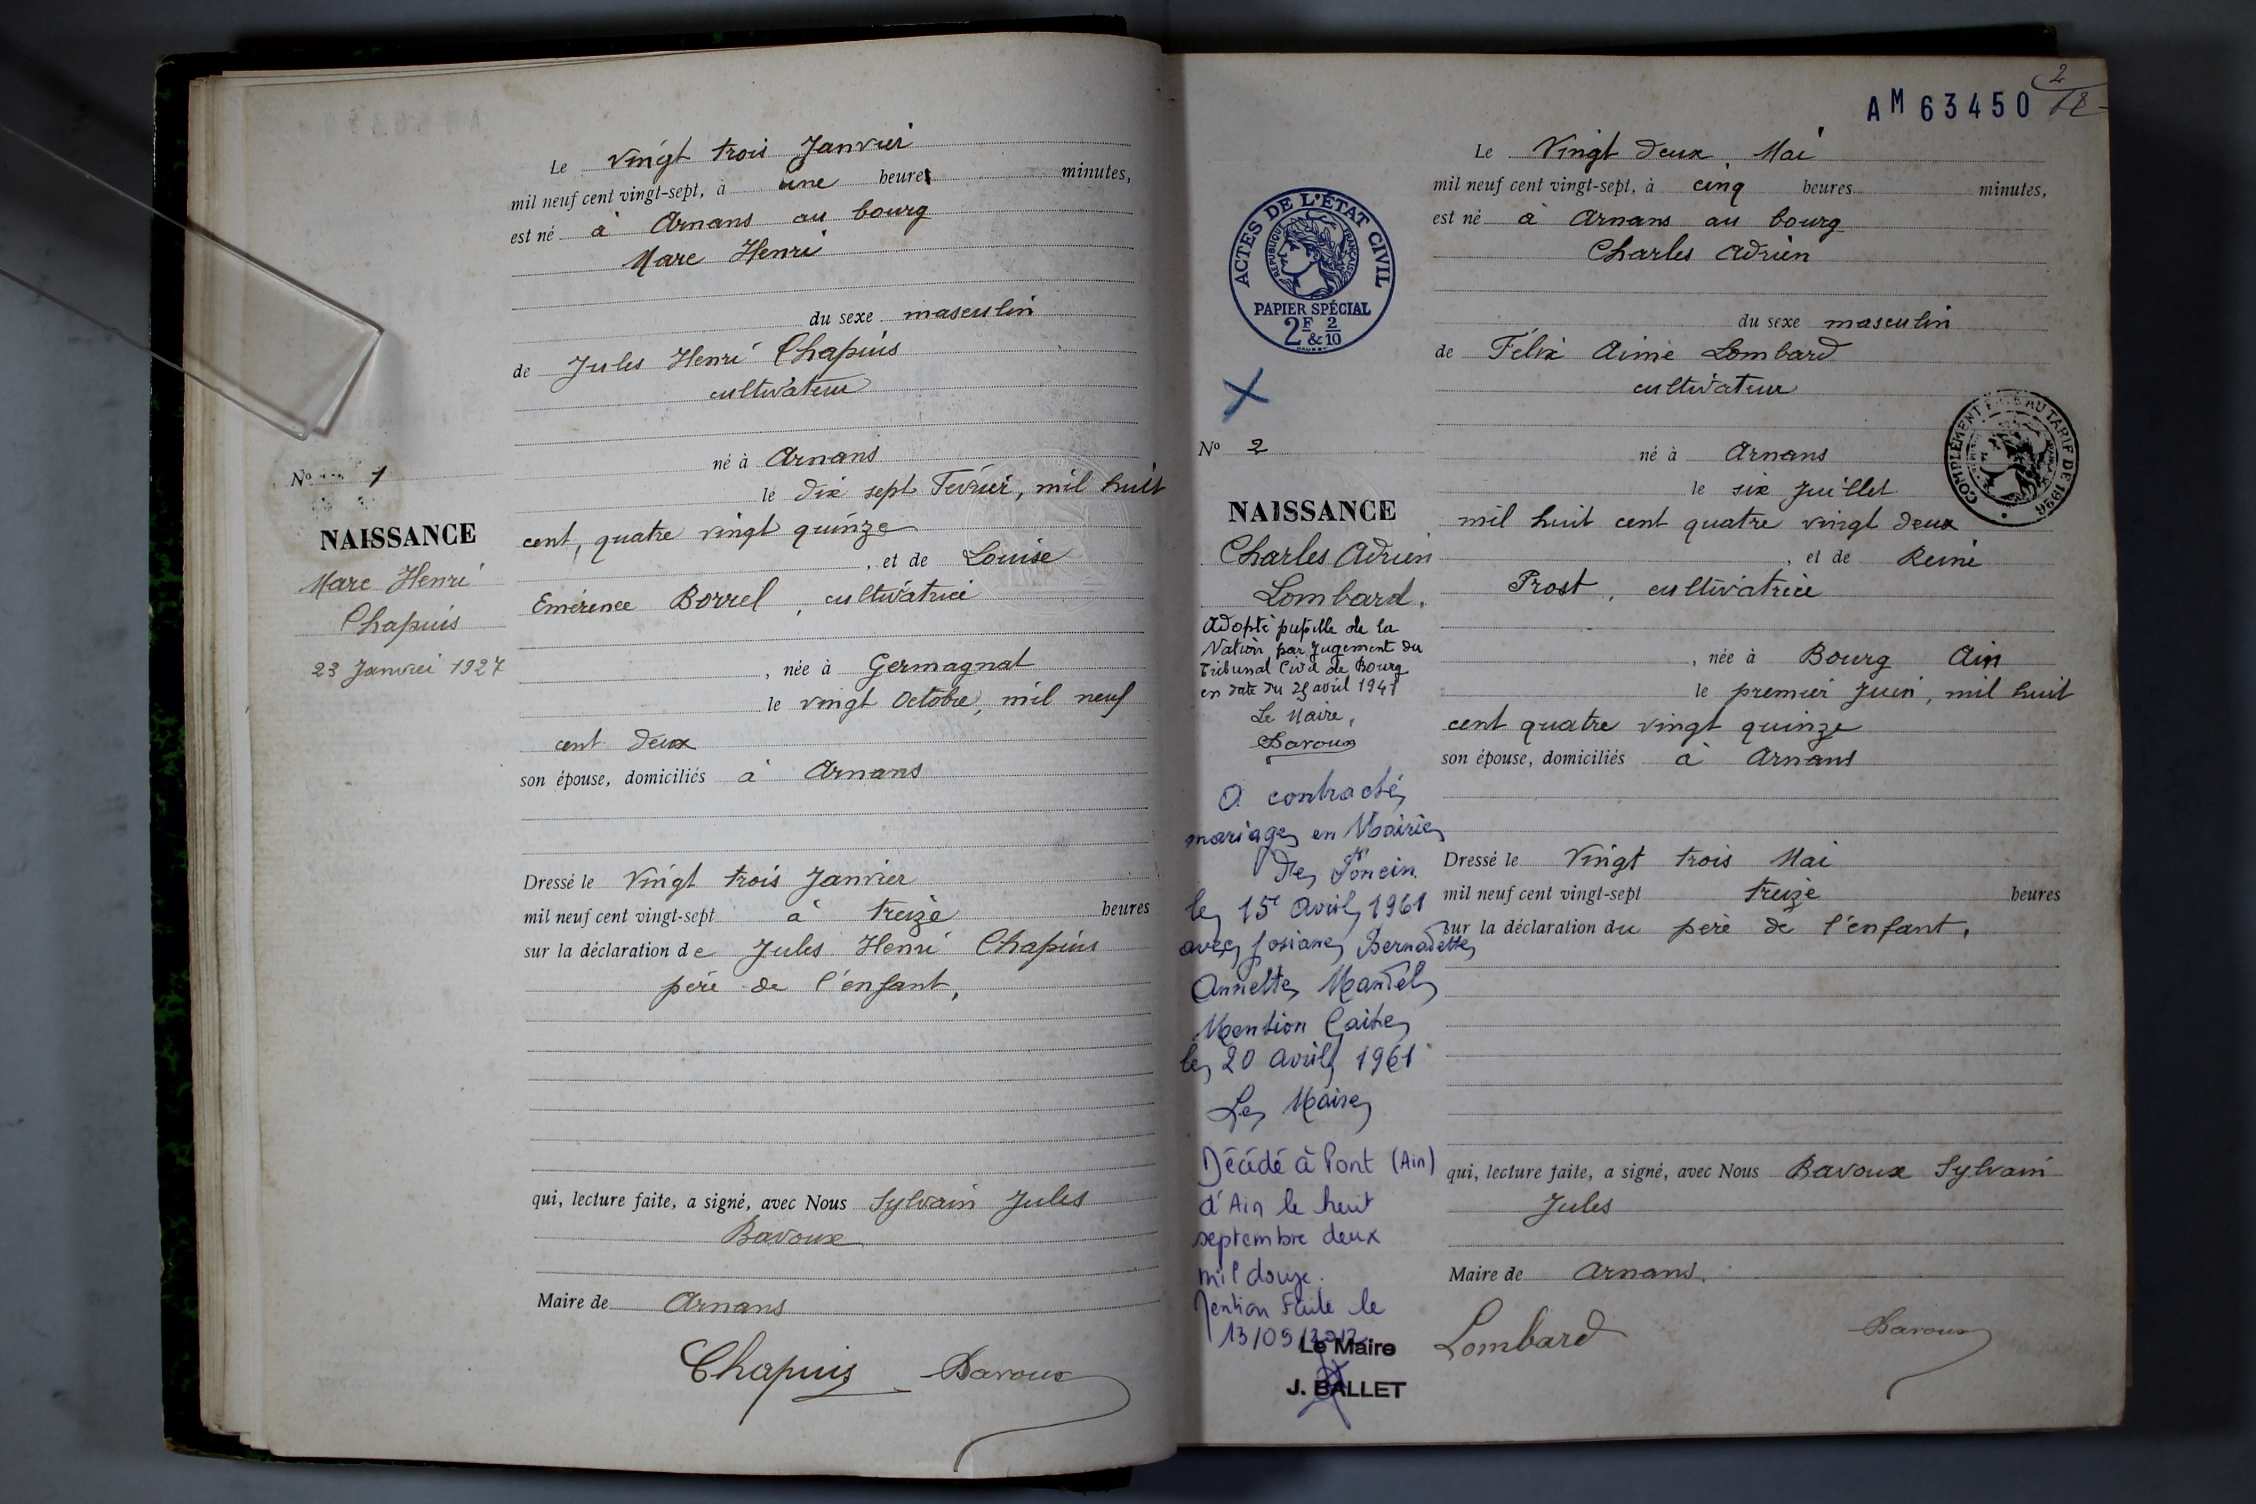 Le vingt trois Janvier
mil neuf cent vingt-sept, à une heure minutes,
est né à Arnans au bourg
Marc Henri
du sexe masculin
de Jules Henri Chapuis
cultivateur
né à Arnans
le dix sept Février, mil huit
cent, quatre vingt quinze
, et de Louise
Emérence Borrel, cultivatrice
, née à Germagnat
le vingt Octobre, mil neuf
cent deux
son épouse, domiciliés à Arnans
Dressé le vingt trois Janvier
mil neuf cent vingt-sept à treize heures
sur la déclaration de Jules Henri Chapuis
père de l'enfant,
qui, lecture faite, a signé, avec Nous Sylvain Jules
Bavoux
Maire de Arnans
Chapuis Bavoux
No 1
NAISSANCE
Marc Henri
Chapuis
23 Janvier 1927
AM 63450
2
ACTES DE L'ÉTAT CIVIL
RÉPUBLIQUE FRANÇAISE
PAPIER SPÉCIAL
2F & 2/10
No 2
NAISSANCE
Charles Adrien
Lombard.
Adopté pupille de la
Nation par jugement du
Tribunal Civil de Bourg
en date du 25 avril 1941
Le Maire,
Bavoux
A contracté
mariage en Mairie
de Poncin
le 15 Avril 1961
avec Josiane Bernadette
Annette Mandel
Mention faite
le 20 avril 1961
Le Maire
Décédé à Pont (Ain)
d'Ain le huit
septembre deux
mil douze.
Mention Faite le
13/09/2012
Le Maire
J. BALLET
Le Vingt deux Mai
mil neuf cent vingt-sept, à cinq heures minutes,
est né à Arnans au bourg
Charles Adrien
du sexe masculin
de Félix Aimé Lombard
cultivateur
COMPLÉMENT PAYÉ AU TARIF DE 1926
né à Arnans
le six Juillet
mil huit cent quatre vingt deux
, et de Reine
Prost, cultivatrice
, née à Bourg Ain
le premier Juin, mil huit
cent quatre vingt quinze
son épouse, domiciliés à Arnans
Dressé le Vingt trois Mai
mil neuf cent vingt-sept treize heures
sur la déclaration du père de l'enfant,
qui, lecture faite, a signé, avec Nous Bavoux Sylvain
Jules
Maire de Arnans.
Lombard Bavoux